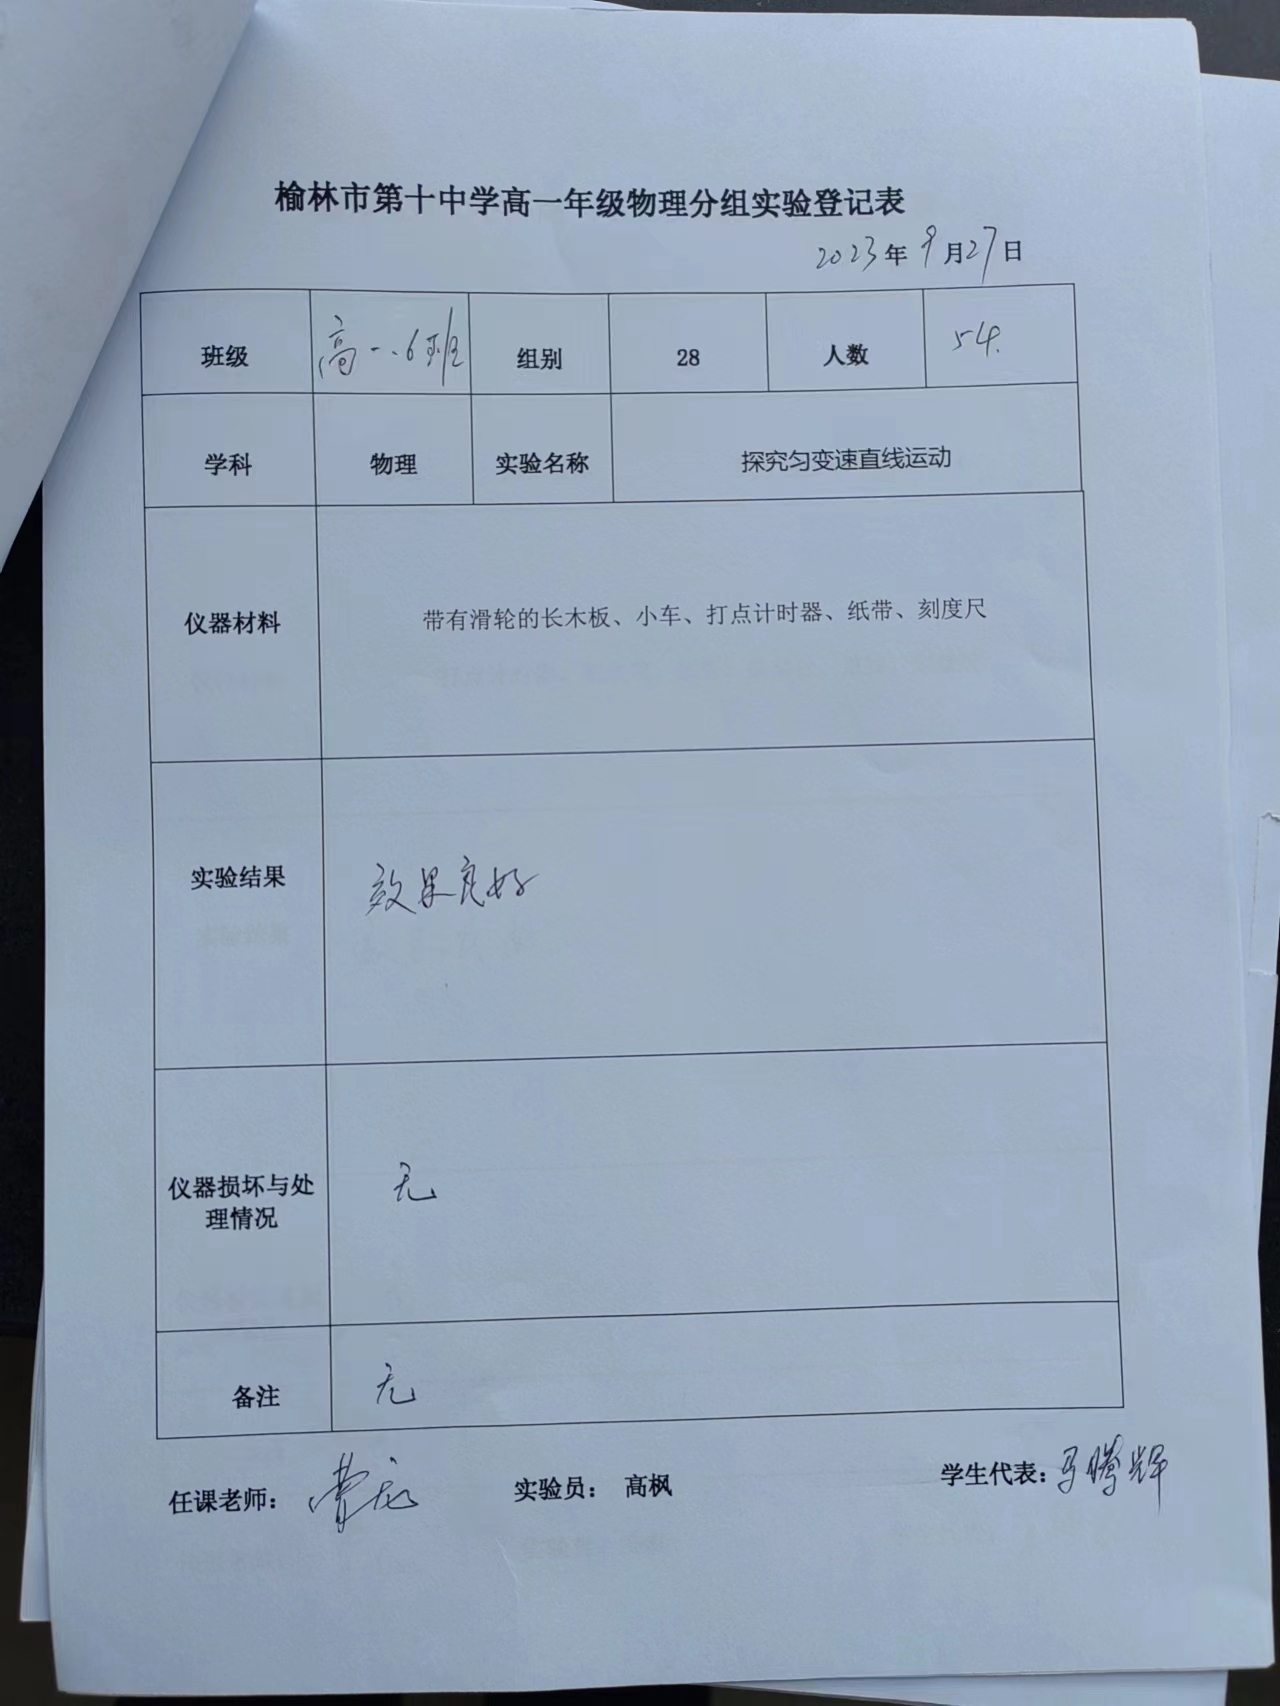 榆林市第十中学高一年级物理分组实验登记表
2023年9月27日
班级 高一.6班 组别 28 人数 54.
学科 物理 实验名称 探究匀变速直线运动
仪器材料 带有滑轮的长木板、小车、打点计时器、纸带、刻度尺
实验结果 效果良好
仪器损坏与处
理情况 无
备注 无
任课老师： 实验员： 高枫 学生代表：马腾辉